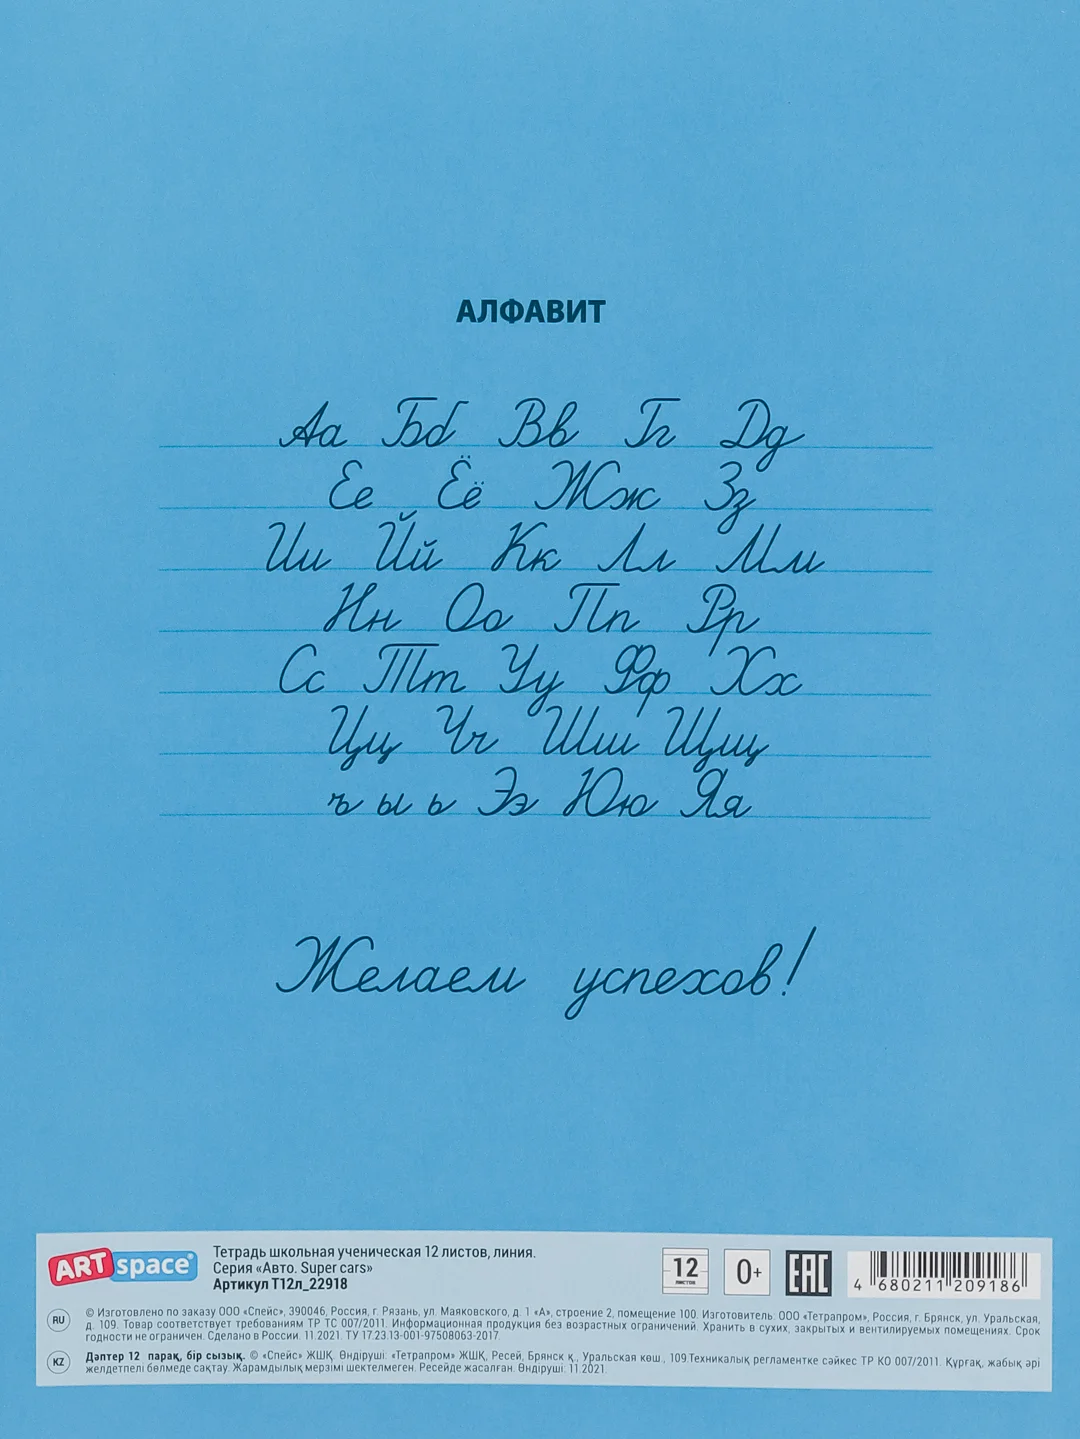 АЛФАВИТ
Аа Бб Вв Гг Дд
Ее Ёё Жж Зз
Ии Йй Кк Лл Мм
Нн Оо Пп Рр
Сс Тт Уу Фф Хх
Цц Чч Шш Щщ
ъ ы ь Ээ Юю Яя
Желаем успехов!
ARTspace®
Тетрадь школьная ученическая 12 листов, линия.
Серия «Авто. Super cars»
Артикул Т12л_22918
12
листов
0+
EAC
4 680211 209186
RU
© Изготовлено по заказу ООО «Спейс», 390046, Россия, г. Рязань, ул. Маяковского, д. 1 «А», строение 2, помещение 100. Изготовитель: ООО «Тетрапром», Россия, г. Брянск, ул. Уральская,
д. 109. Товар соответствует требованиям ТР ТС 007/2011. Информационная продукция без возрастных ограничений. Хранить в сухих, закрытых и вентилируемых помещениях. Срок
годности не ограничен. Сделано в России. 11.2021. ТУ 17.23.13-001-97508063-2017.
KZ
Дәптер 12 парақ, бір сызық. © «Спейс» ЖШҚ. Өндіруші: «Тетрапром» ЖШҚ, Ресей, Брянск қ., Уральская көш., 109.Техникалық регламентке сәйкес ТР КО 007/2011. Құрғақ, жабық әрі
желдетпелі бөлмеде сақтау. Жарамдылық мерзімі шектелмеген. Ресейде жасалған. Өндіруші: 11.2021.